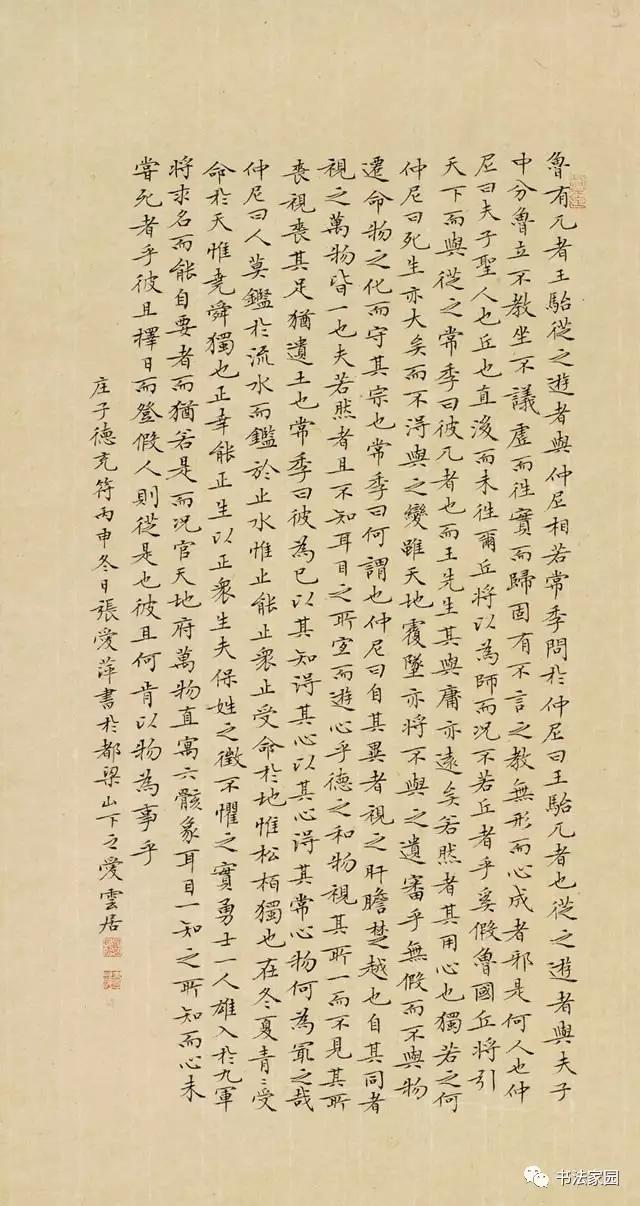 魯有兀者王駘從之遊者與仲尼相若常季問於仲尼曰王駘兀者也從之遊者與夫子
中分魯立不教坐不議虛而往實而歸固有不言之教無形而心成者邪是何人也仲
尼曰夫子聖人也丘也直後而未往爾丘將以為師而況不若丘者乎奚假魯國丘將引
天下而與從之常季曰彼兀者也而王先生其與庸亦遠矣若然者其用心也獨若之何
仲尼曰死生亦大矣而不得與之變雖天地覆墜亦將不與之遺審乎無假而不與物
遷命物之化而守其宗也常季曰何謂也仲尼曰自其異者視之肝膽楚越也自其同者
視之萬物皆一也夫若然者且不知耳目之所宜而遊心乎德之和物視其所一而不見其所
喪視喪其足猶遺土也常季曰彼為己以其知得其心以其心得其常心物何為冣之哉
仲尼曰人莫鑑於流水而鑑於止水惟止能止衆止受命於地惟松栢獨也在冬夏青〻受
命於天惟堯舜獨也正幸能正生以正衆生夫保姓之徵不懼之實勇士一人雄入於九軍
將求名而能自要者而猶若是而況官天地府萬物直寓六骸象耳目一知之所知而心未
嘗死者乎彼且擇日而登假人則從是也彼且何肯以物為事乎
庄子德充符丙申冬日張愛萍書於都梁山下之愛雲居
书法家园